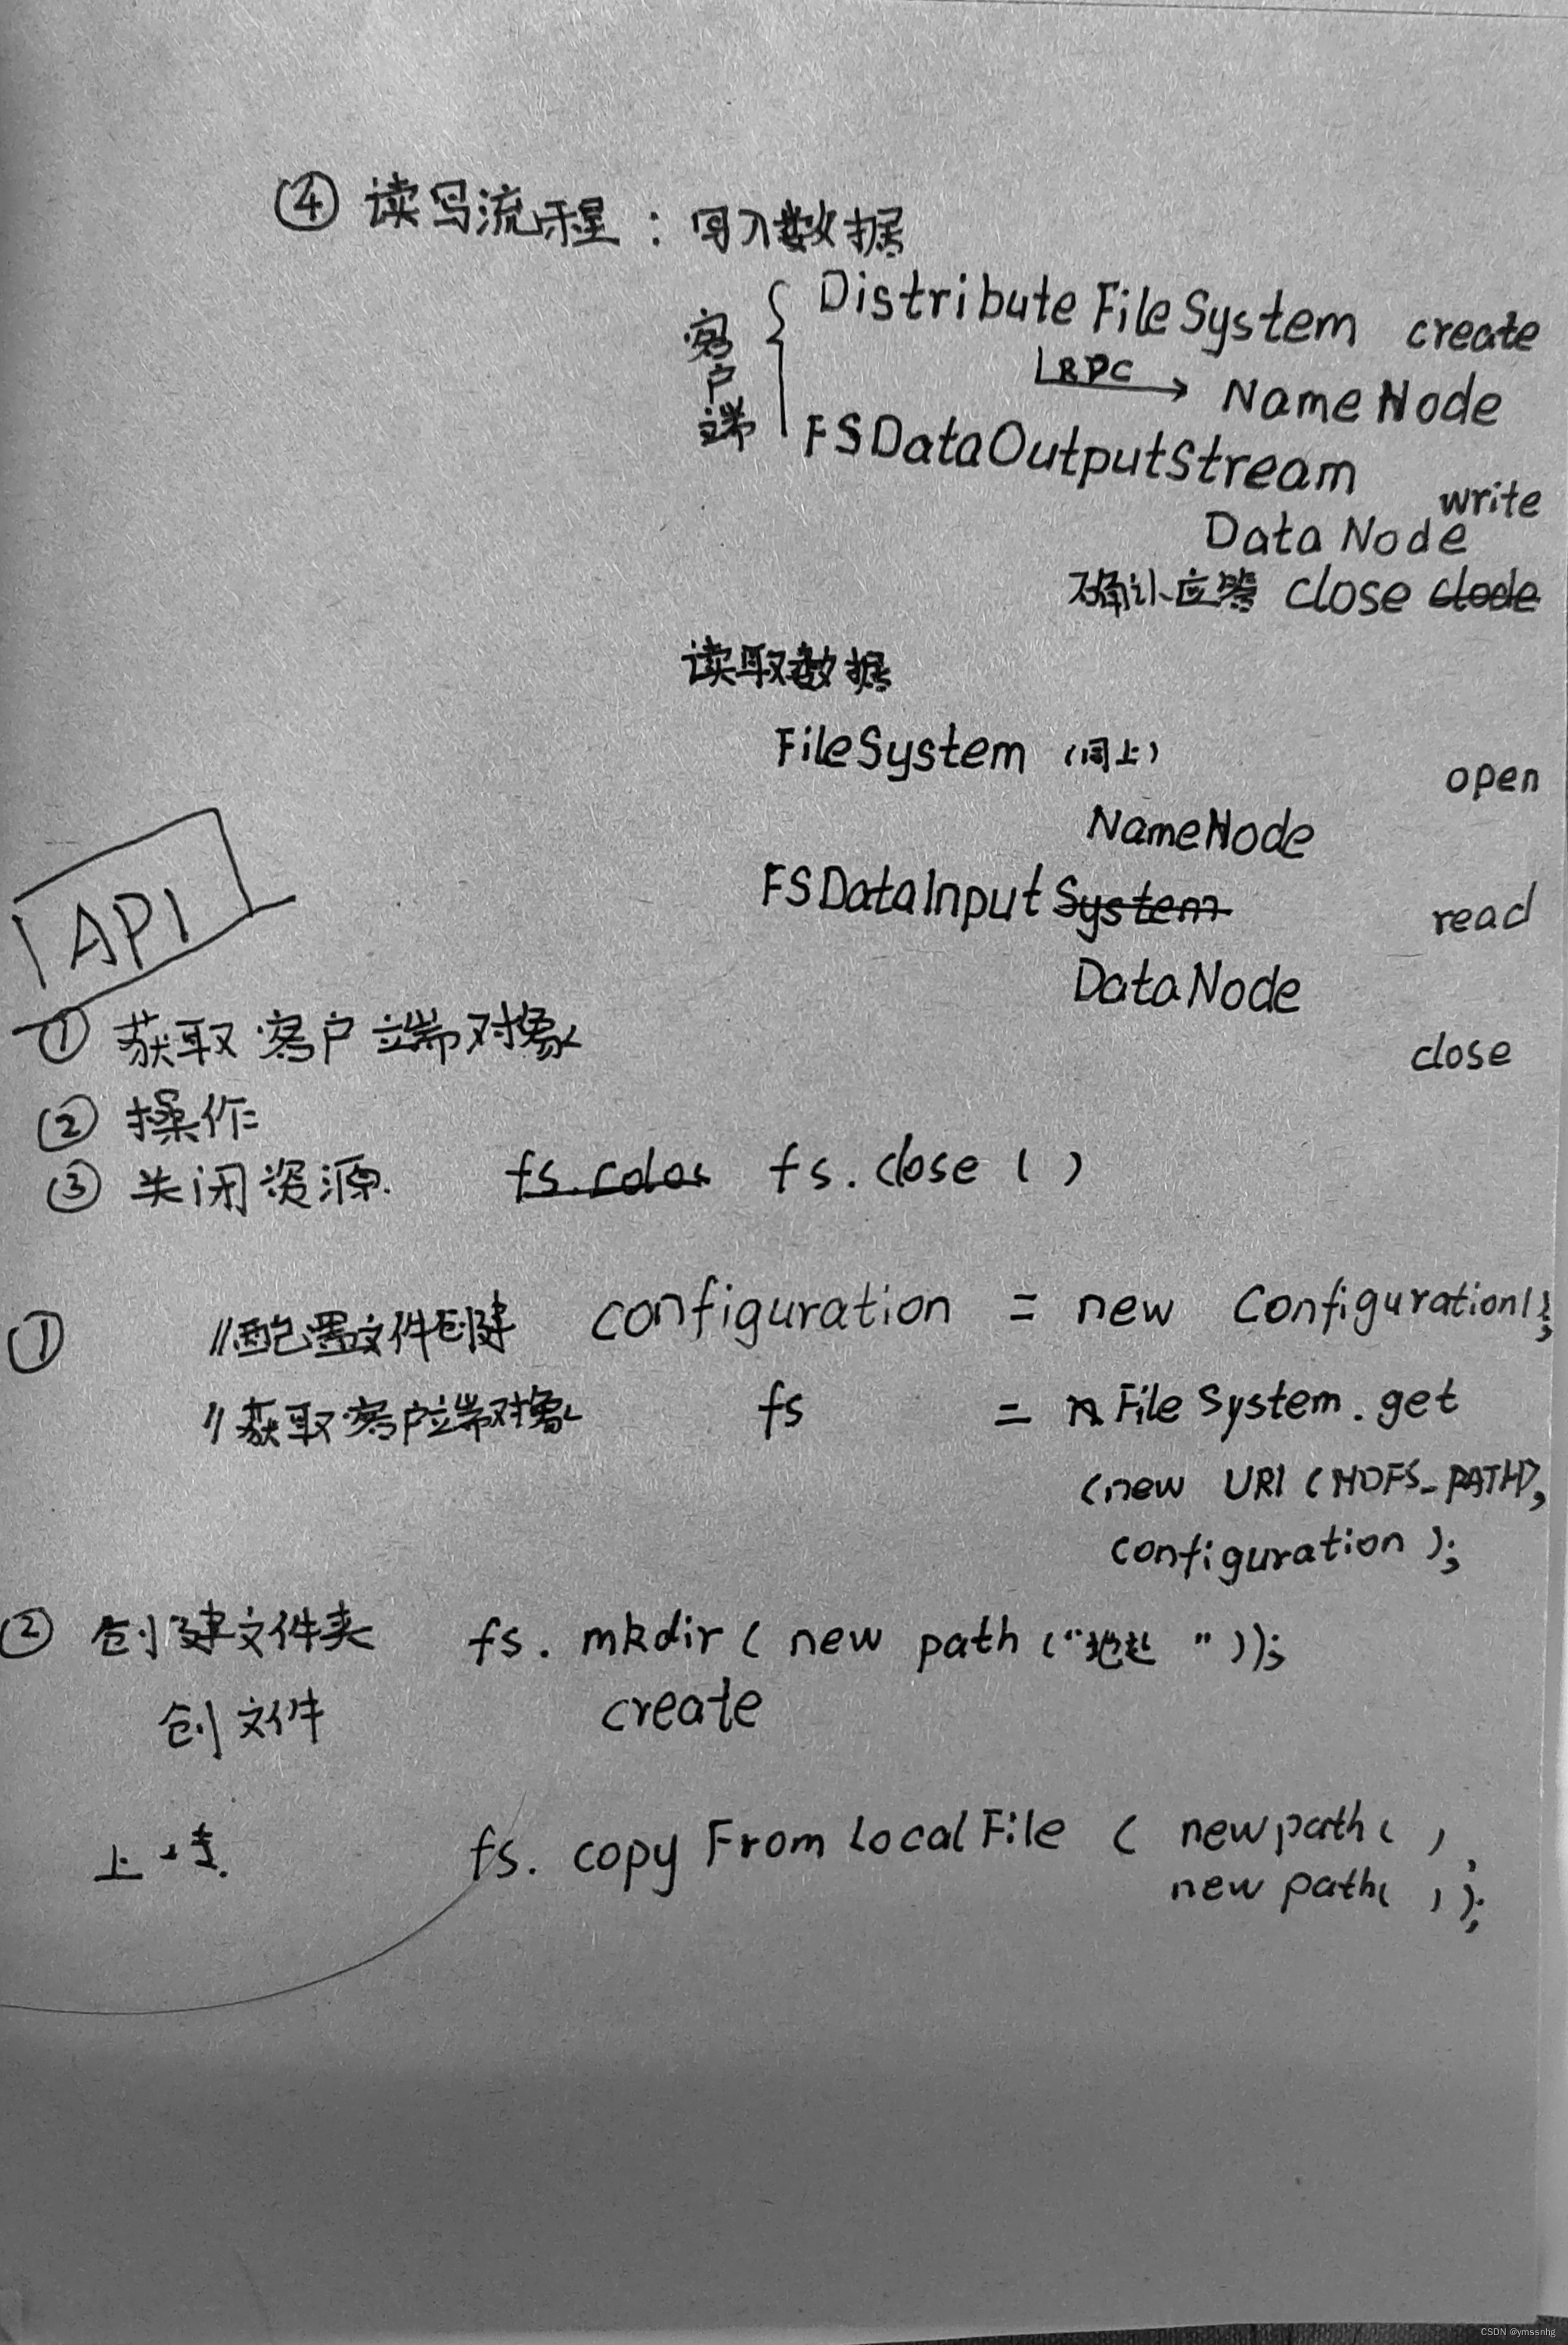 ④ 读写流程：写入数据
客户端 { Distribute FileSystem create
RPC → NameNode
FSDataOutputStream
write
DataNode
确认应答 close clode
读取数据
FileSystem （同上）
open
NameNode
FSDataInput System
read
DataNode
close
API
① 获取客户端对象
② 操作
③ 关闭资源. fs.colos fs.close ( )
① //配置文件创建 configuration = new Configuration();
//获取客户端对象 fs = FileSystem.get
(new URI (HDFS_PATH),
configuration );
② 创建文件夹 fs. mkdir ( new path ("地址 "));
创文件 create
上传 fs. copyFromLocalFile ( new path( ),
new path( ) );
CSDN @ymssnhg